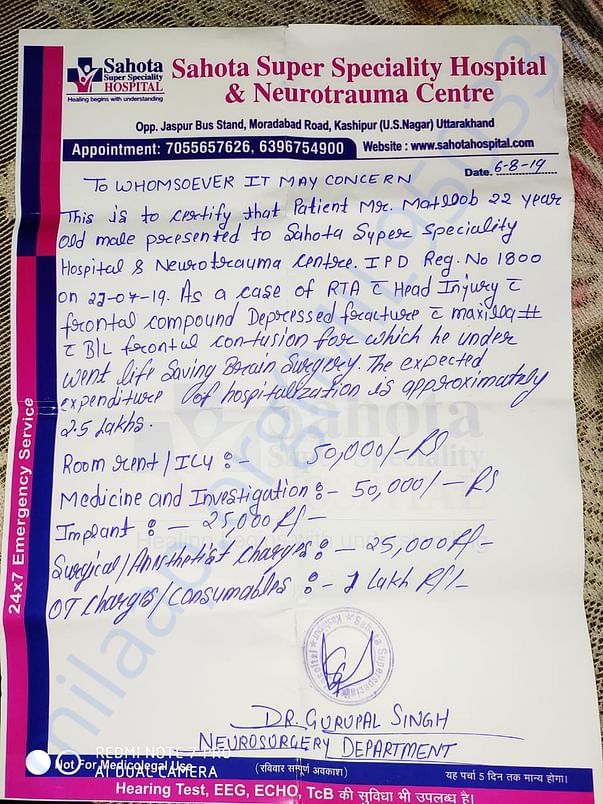 Sahota
Super Speciality
HOSPITAL
Healing begins with understanding
Sahota Super Speciality Hospital
& Neurotrauma Centre
Opp. Jaspur Bus Stand, Moradabad Road, Kashipur (U.S.Nagar) Uttarakhand
Appointment: 7055657626, 6396754900 Website : www.sahotahospital.com
Date. 6-8-19
TO WHOMSOEVER IT MAY CONCERN
This is to certify that Patient Mr. Matloob 22 year
old male presented to Sahota Super Speciality
Hospital & Neurotrauma centre. IPD Reg. No 1800
on 27-07-19. As a case of RTA c̄ Head Injury c̄
frontal compound Depressed fracture c̄ maxilla #
c̄ B/L frontal contusion for which he under
went life Saving Brain Surgery. The expected
expenditure of hospitalization is approximately
2.5 Lakhs.
Room rent / ICU :- 50,000/- RS
Medicine and Investigation :- 50,000/- RS
Implant :- 25,000 R/-
Surgical / Ansthetist charges :- 25,000 R/-
OT charges / consumables :- 1 Lakh R/-
DR. GURUPAL SINGH
NEUROSURGERY DEPARTMENT
24x7 Emergency Service
Not For Medicolegal Use
REDMI NOTE 7 PRO
AI DUAL CAMERA
(रविवार सम्पूर्ण अवकाश)
यह पर्चा 5 दिन तक मान्य होगा।
Hearing Test, EEG, ECHO, TcB की सुविधा भी उपलब्ध है।